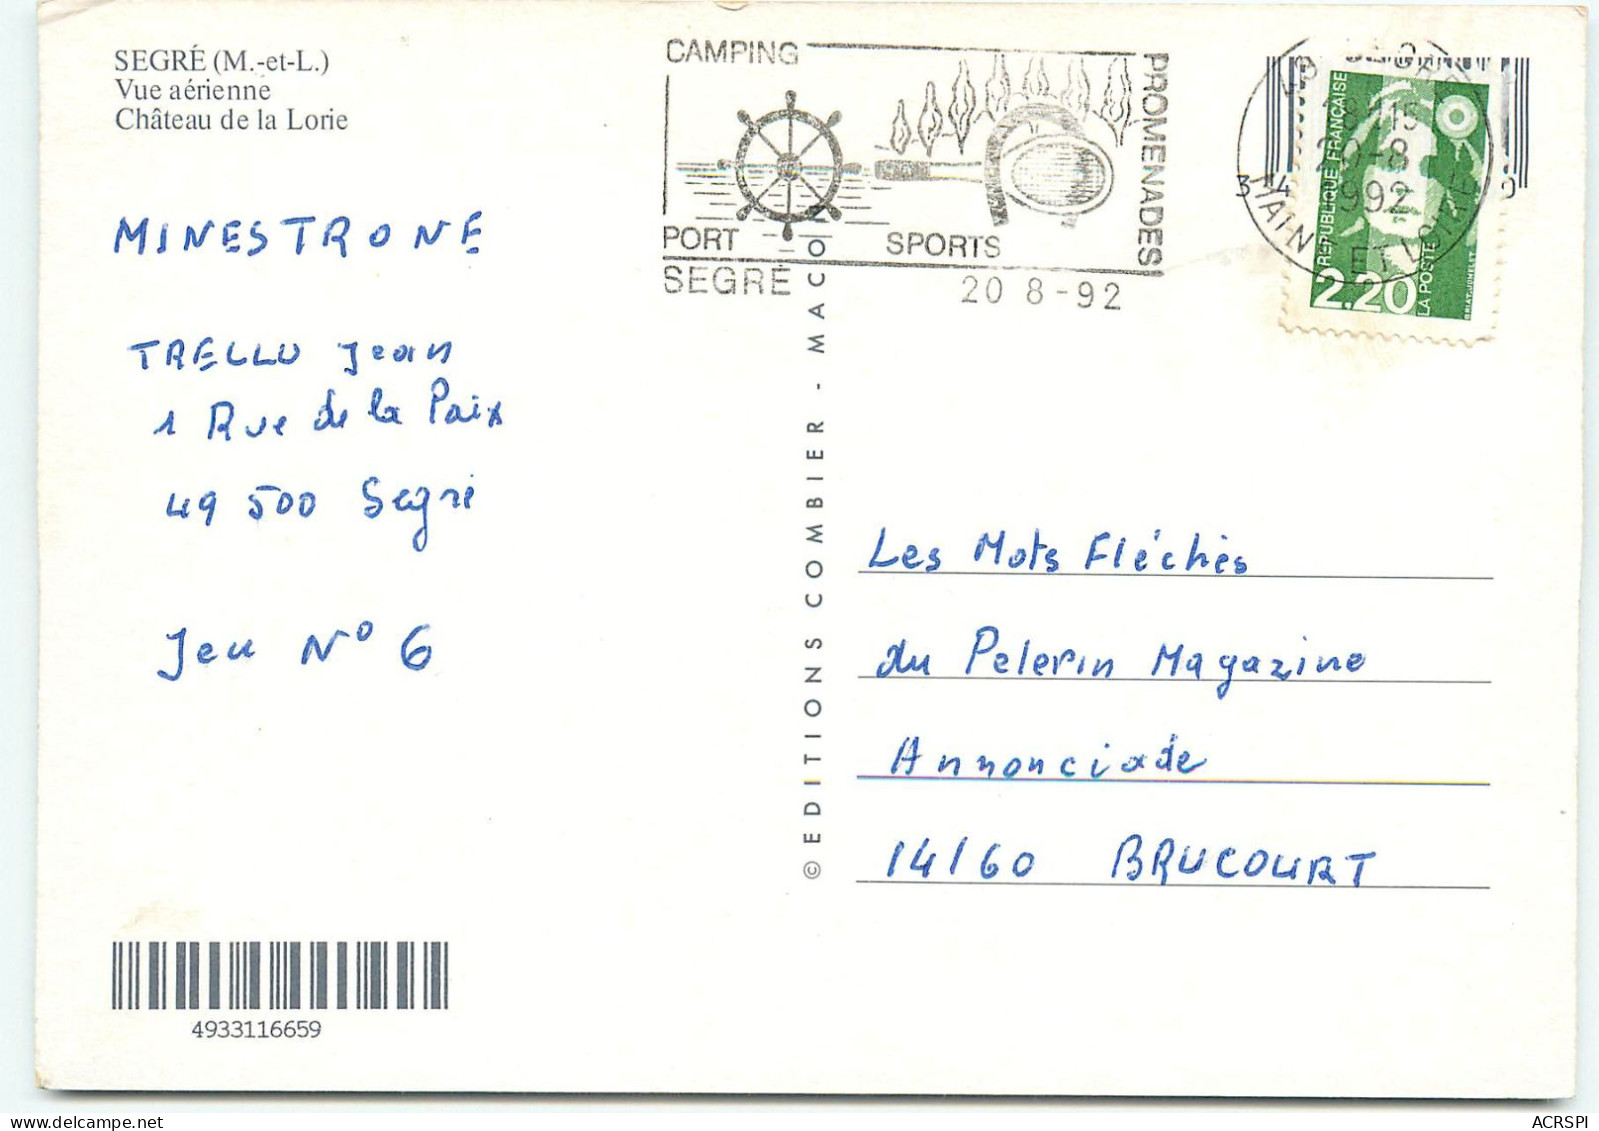 SEGRÉ (M.-et-L.)
Vue aérienne
Château de la Lorie
MINESTRONE
TRELLU Jean
1 Rue de la Paix
49 500 Segré
Jeu N° 6
4933116659
© EDITIONS COMBIER - MACON
CAMPING
PROMENADES
PORT
SPORTS
SEGRÉ
20 8-92
20-8
1992
REPUBLIQUE FRANÇAISE
2.20
LA POSTE
Les Mots Fléchés
du Pelerin Magazine
Annonciade
14160 BRUCOURT
www.delcampe.net
ACRSPI